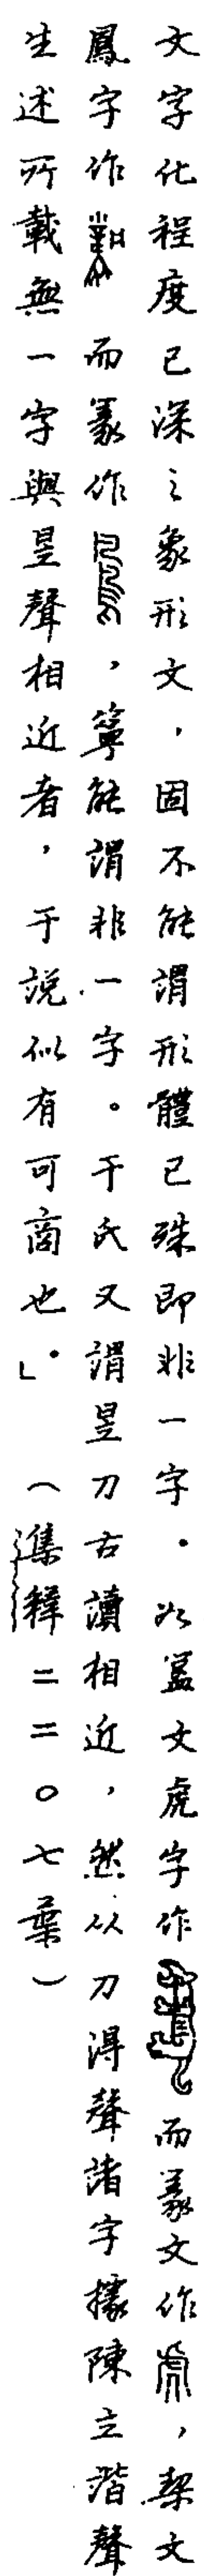 文字化程度已深之象形文，固不能謂形體已殊即非一字。必盖文虎字作而篆文作，契文
鳳字作而篆作，寧能謂非一字。于氏又謂昱刀古讀相近，然从刀得聲諸字據陳立諧聲
生述所載無一字與昱聲相近者，于說似有可商也。」（集釋二二〇七葉）